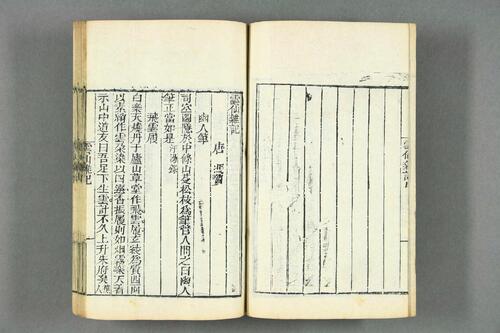 雲仙雜記
唐 馮贄
幽人筆
司空圖隱於中條山芟松枝爲筆管人問之曰幽人
筆正當如是汗漫錄
飛雲履
白樂天燒丹于廬山草堂作飛雲履玄綾爲質四面
以素綃作雲朶染以四選香振履則如烟霧樂天着
示山中道友曰吾足下生雲計不久上升朱府矣
雲仙雜記